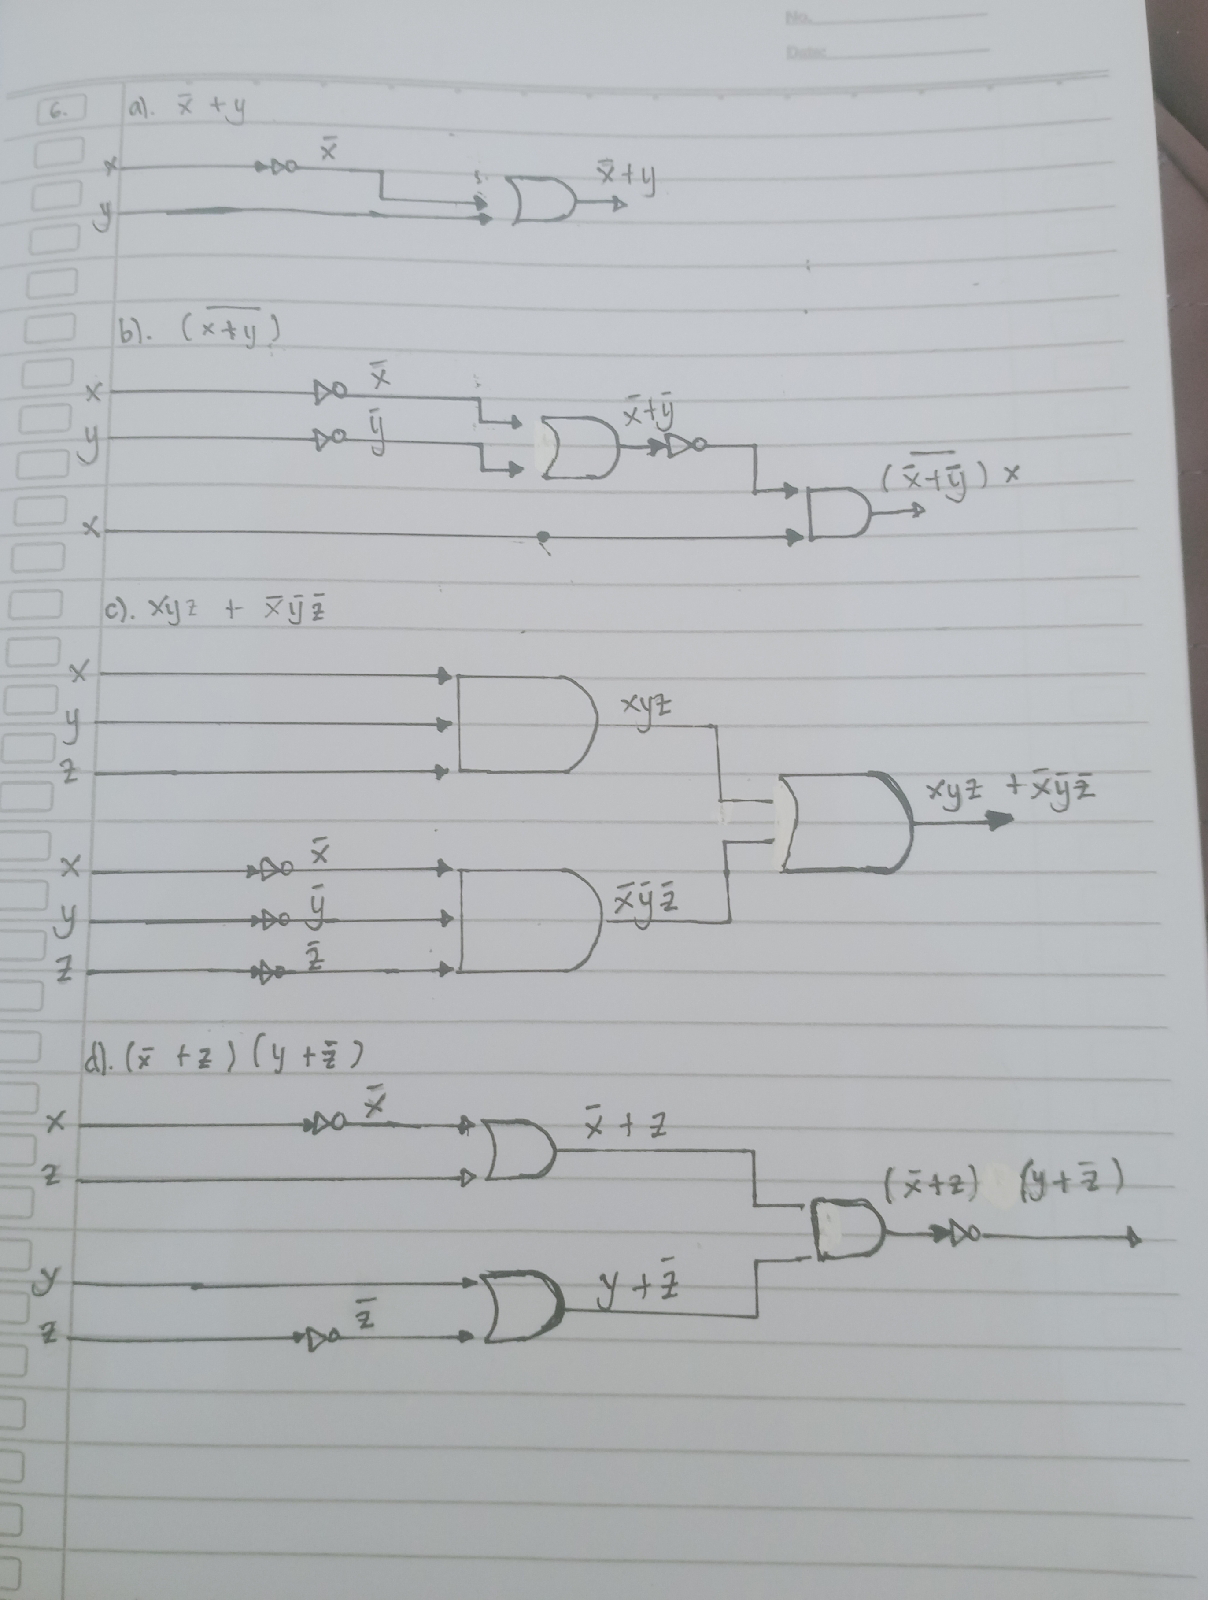 No.
Date:
6. a). x̄ + y
x x̄ x̄+y
y
b). (x̅+̅y̅)
x x̄
y ȳ x̄+ȳ
x (x̄̅+̅ȳ̅) x
c). xyz + x̄ȳz̄
x
y xyz
z
xyz + x̄ȳz̄
x x̄
y ȳ x̄ȳz̄
z z̄
d). (x̄ + z) (y + z̄)
x x̄ x̄ + z
z (x̄+z) (y+z̄)
y y + z̄
z z̄